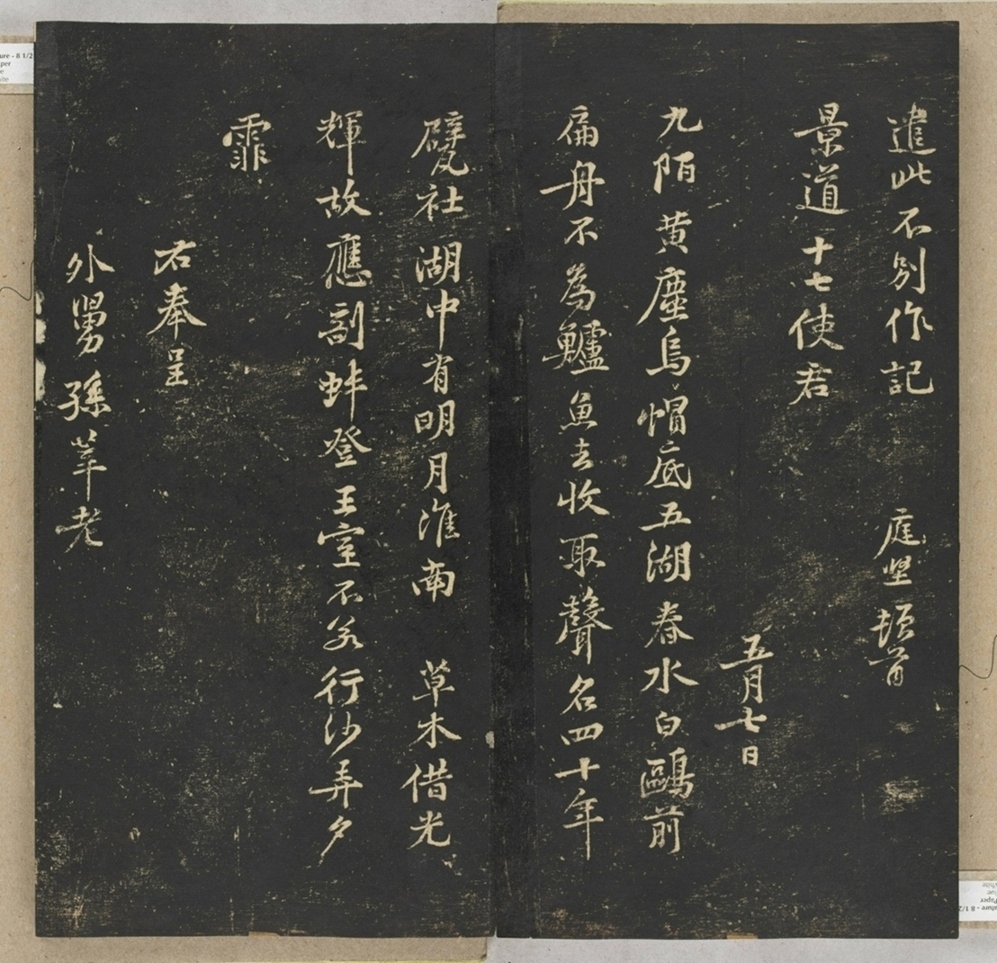 遣此不別作記 庭堅頓首
景道十七使君
五月七日
九陌黃塵烏帽底五湖春水白鷗前
扁舟不為鱸魚去收取聲名四十年
甓社湖中有明月淮南 草木借光
輝故應剖蚌登王室不若行沙弄夕
霏
右奉呈
外舅孫莘老